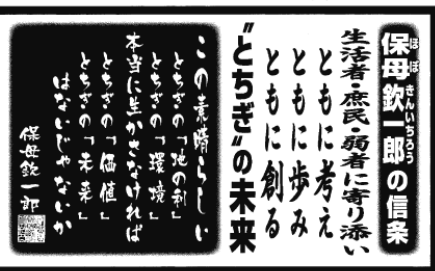 保母欽一郎の信条
ほぼきんいちろう
生活者・庶民・弱者に寄り添い
ともに考え
ともに歩み
ともに創る
〝とちぎ〟の未来
この素晴らしい
とちぎの「地の利」
とちぎの「環境」
本当に生かさなければ
とちぎの「価値」
とちぎの「未来」
はないじゃないか
保母欽一郎